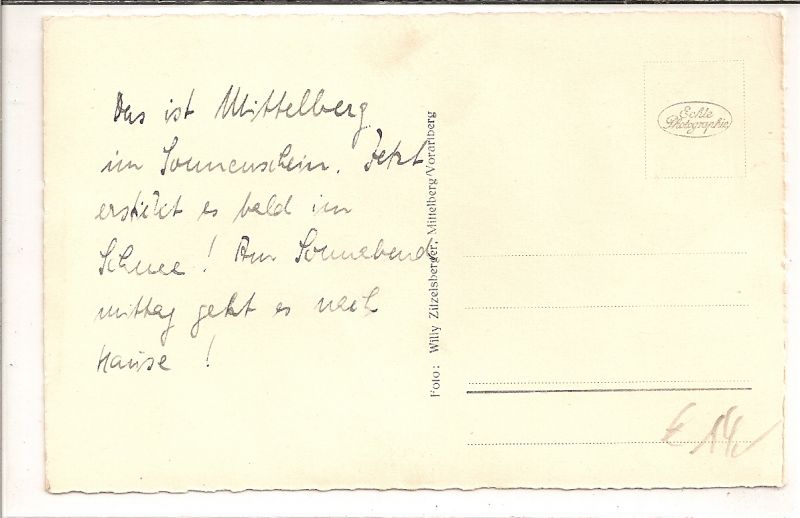 Das ist Mittelberg
im Sonnenschein. Jetzt
erstickt es bald im
Schnee! Am Sonnabend
mittag geht es nach
Hause!
Foto: Willy Zitzelsberger, Mittelberg/Vorarlberg
Echte
Photographie
€ 14,